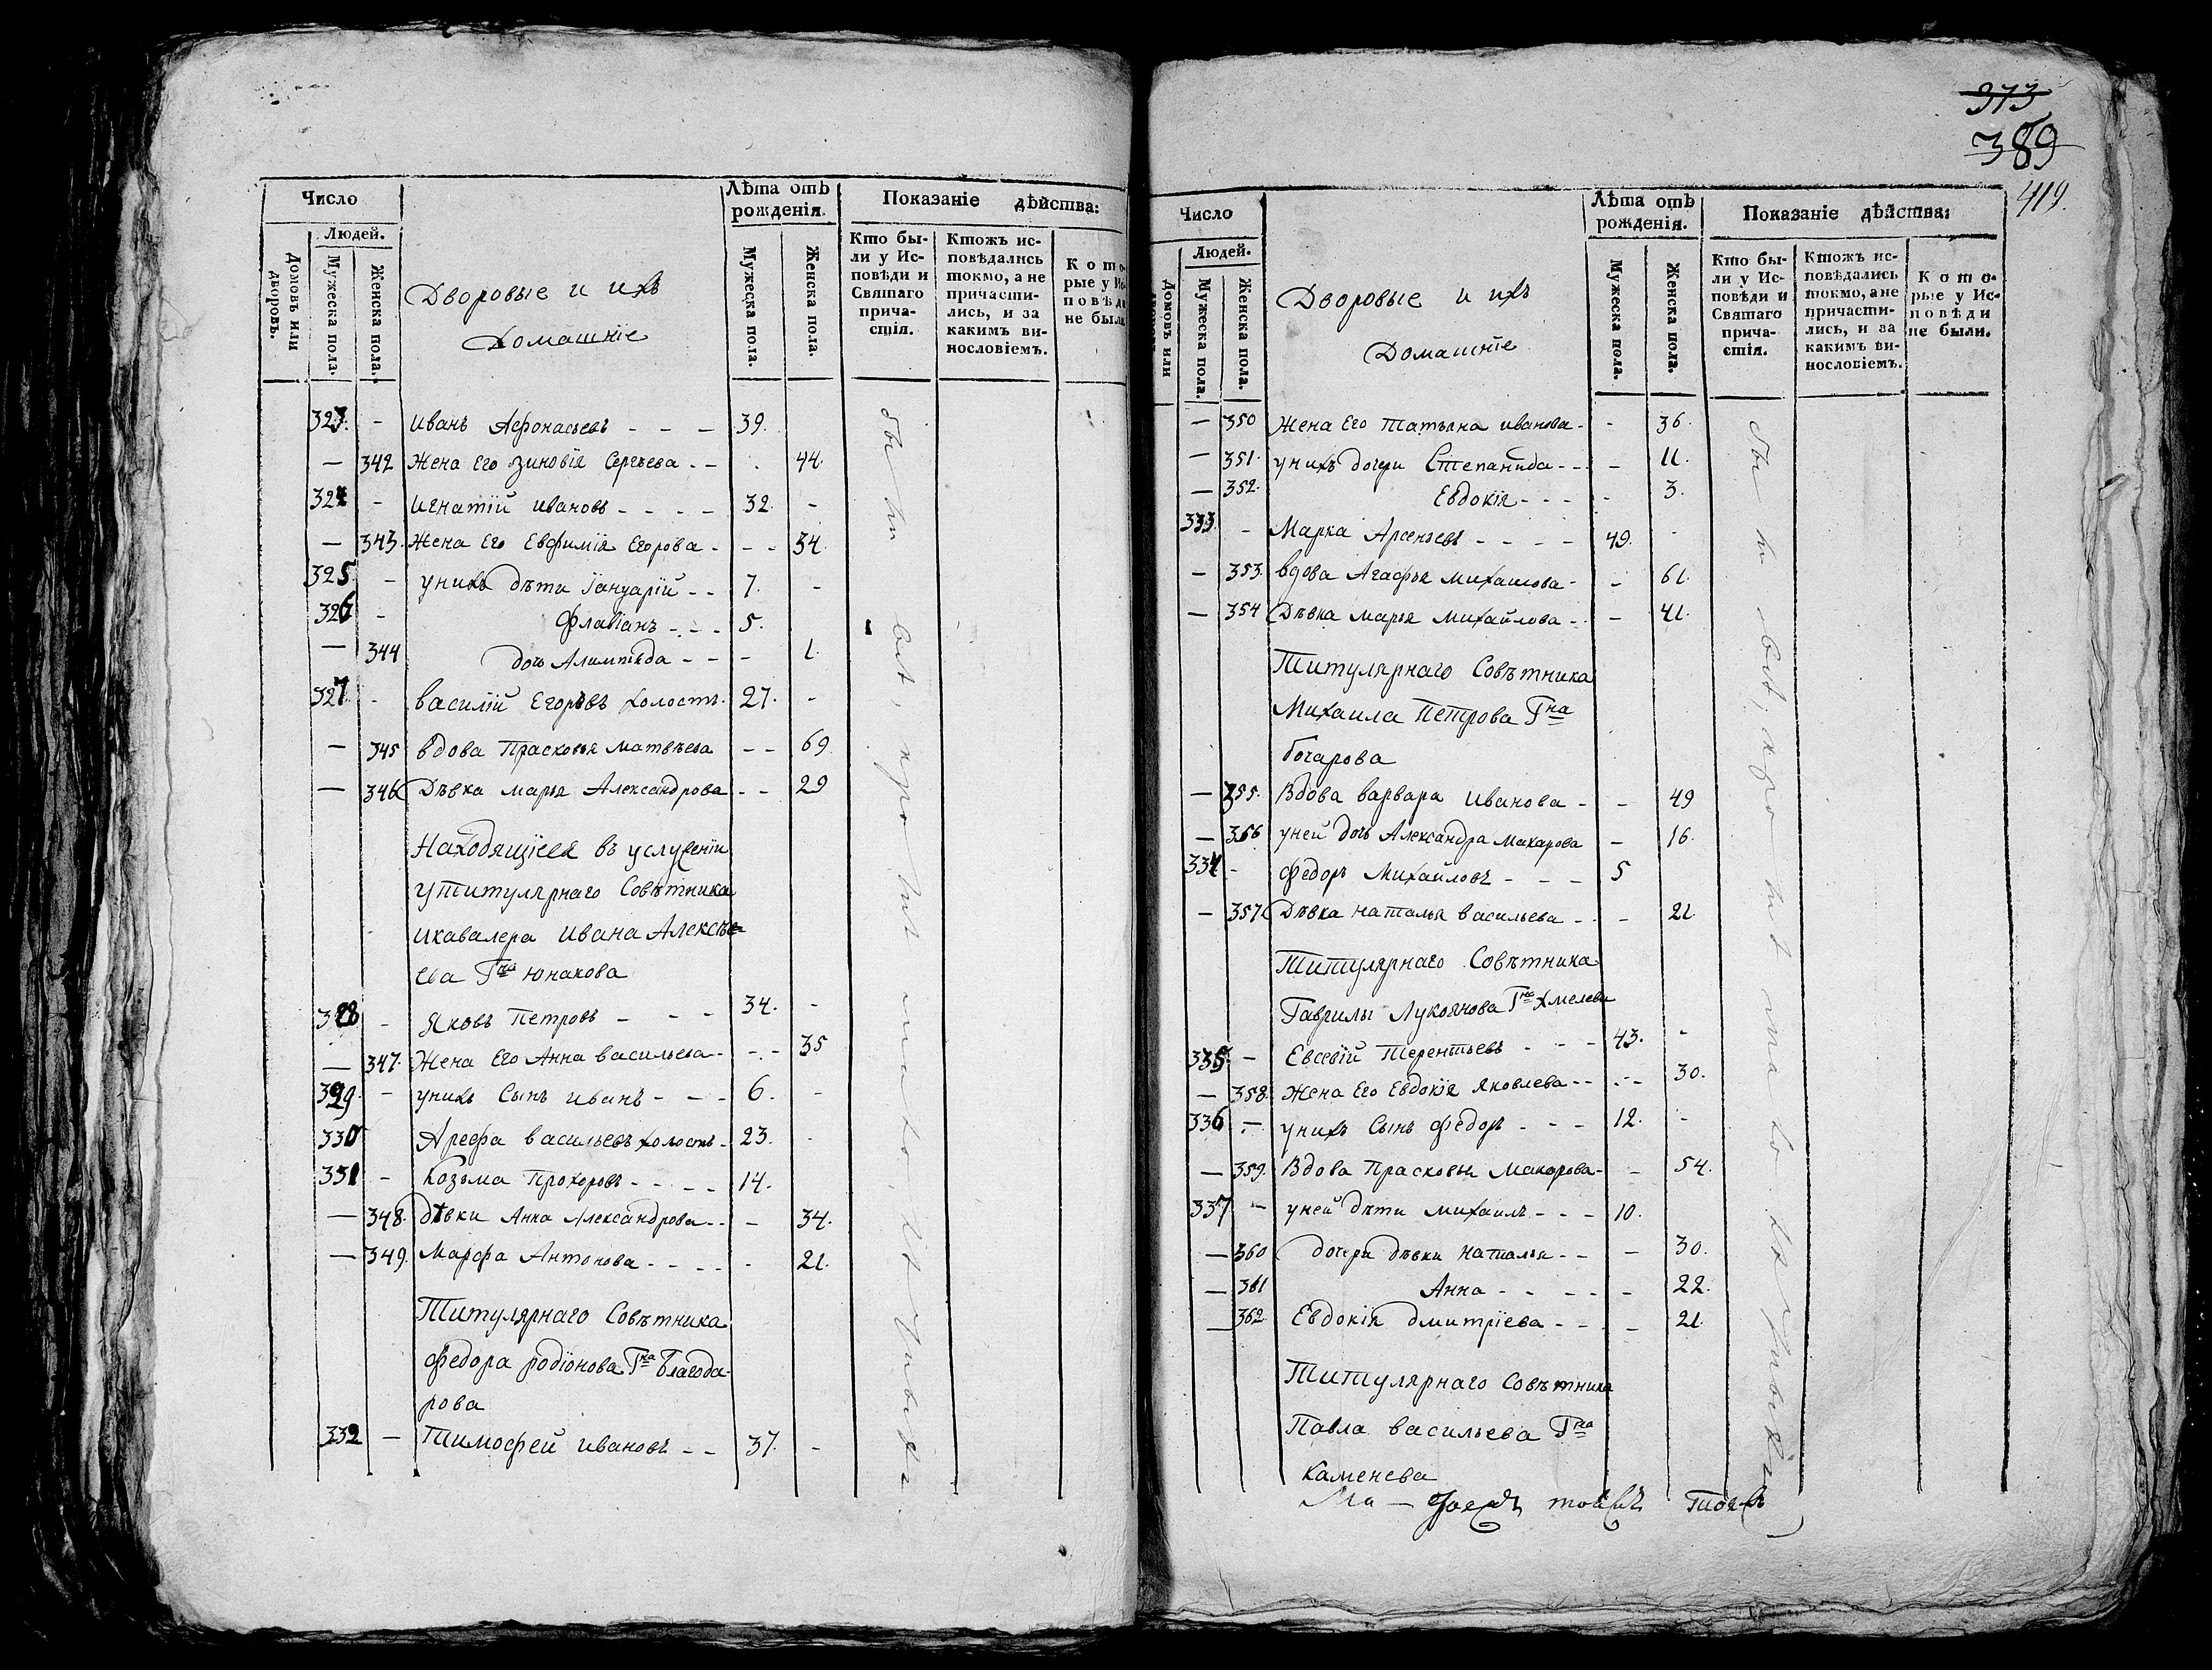 Число
Людей.
Домовъ или дворовъ.
Мужеска пола.
Женска пола.
Дворовые и ихъ
Домашніе
Лѣта отъ рожденія.
Мужеска пола.
Женска пола.
Показаніе дѣйства:
Кто бы-
ли у Ис-
повѣди и
Святаго
прича-
стія.
Ктожъ ис-
повѣдались
токмо, а не
причасти-
лись, и за
какимъ ви-
нословіемъ.
Кото-
рые у Ис-
повѣди
не были
323. - Иванъ Афонасьевъ - - - 39.
— 342 Жена Его Зиновія Сергѣева - - . 44.
324 - Игнатій Ивановъ - - - - 32. -
— 343. Жена Его Евфимія Егорова - - - 34
325 - унихъ дѣти Іануарій - - 7. -
326 - Флавіанъ - - - 5.
— 344 дочь Алимпіада - - - 1.
327 - Василій Егоровъ холостъ. 27. -
— 345 вдова Прасковья Матвѣева - - 69
— 346 Дѣвка Марья Александрова - - 29
Находящіеся въ услуженіи
у титулярнаго Совѣтника
и кавалера Ивана Алексѣе-
ева Гна Юнакова
328 - Яковъ Петровъ - - - 34. -
— 347. Жена Его Анна Васильева - - - - 35
329. - унихъ Сынъ Иванъ - - - 6. -
330 Арефа Васильевъ холостъ - 23. -
331 - Козьма Прохоровъ - - - - 14.
— 348. дѣвки Анна Александрова - - - 34.
— 349. Марфа Антонова - - - - - 21.
Титулярнаго Совѣтника
Федора Родіонова Гна Благода-
рова
332 — Тимофей Ивановъ - - 37. -
373
389
419.
Число
Людей.
Домовъ или
Мужеска пола.
Женска пола.
Дворовые и ихъ
Домашніе
Лѣта отъ рожденія.
Мужеска пола.
Женска пола.
Показаніе дѣйства:
Кто бы-
ли у Ис-
повѣди и
Святаго
прича-
стія.
Ктожъ ис-
повѣдались
токмо, а не
причасти-
лись, и за
какимъ ви-
нословіемъ.
Кото-
рые у Ис-
повѣди
не были.
— 350 Жена Его Татьяна Иванова - - 36.
— 351. унихъ дочери Степанида - - - 11.
— 352. Евдокія - - - - 3.
333. - Марка Арсеньевъ - - - - 49. -
— 353. вдова Агафья Михайлова - - 61.
— 354 Дѣвка Марья Михайлова - - - 41.
Титулярнаго Совѣтника
Михаила Петрова Гна
Бочарова
— 355. Вдова Варвара Иванова - - 49
— 356 уней дочь Александра Макарова - 16.
334 - Федоръ Михайловъ - - - 5
— 357. Дѣвка Наталья Васильева - - 21.
Титулярнаго Совѣтника
Гаврилы Лукоянова Гна Хмелева
335. — Евсевій Терентьевъ - - - 43. -
— 358. Жена Его Евдокія Яковлева - - - - 30.
336 — унихъ Сынъ Федоръ - - - 12. -
— 359. Вдова Прасковья Макарова - - 54.
337 - уней дѣти Михаилъ - - - 10.
— 360 дочери дѣвки Наталья - - - 30.
— 361 Анна - - - - - 22.
— 362 Евдокія Дмитріева - - - 21.
Титулярнаго Совѣтника
Павла Васильева Гна
Каменева